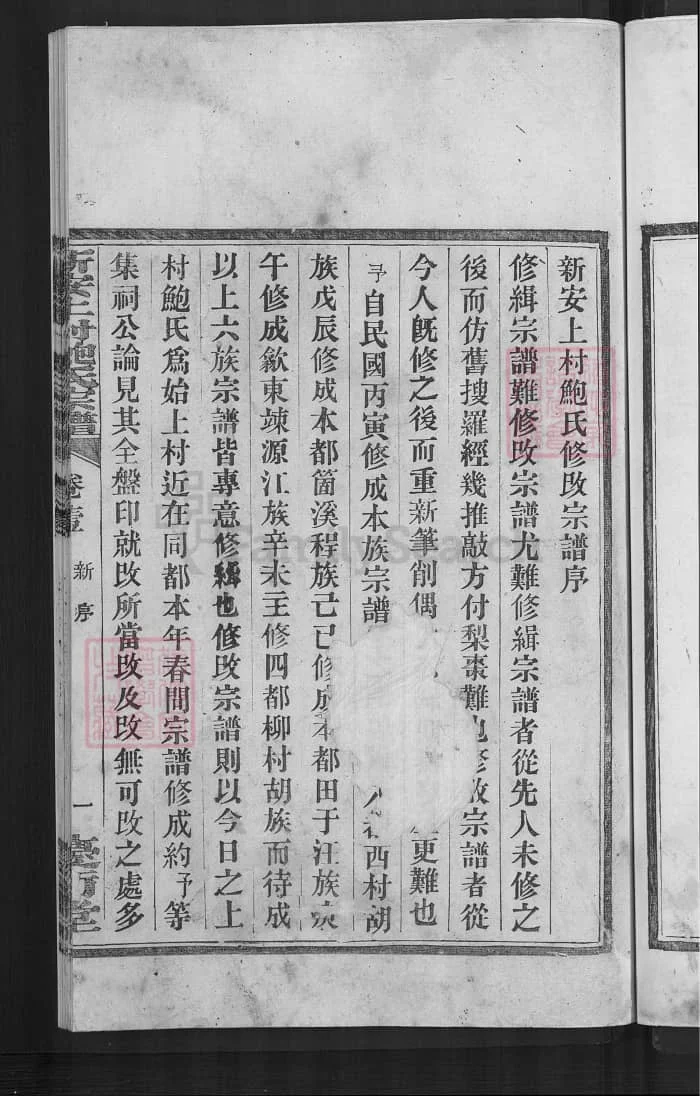 新安上村鮑氏修改宗譜序
修緝宗譜難修改宗譜尤難修緝宗譜者從先人未修之
後而仿舊搜羅經幾推敲方付梨棗難也修改宗譜者從
今人旣修之後而重新筆削偶 更難也
予自民國丙寅修成本族宗譜 西村胡
族戊辰修成本都箇溪程族己巳修成本都田于汪族庚
午修成歙東竦源江族辛未主修四都柳村胡族而待成
以上六族宗譜皆專意修緝也修改宗譜則以今日之上
村鮑氏爲始上村近在同都本年春間宗譜修成約予等
集祠公論見其全盤印就改所當改及改無可改之處多
新安上村鮑氏宗譜
卷壹
新序
一
堂